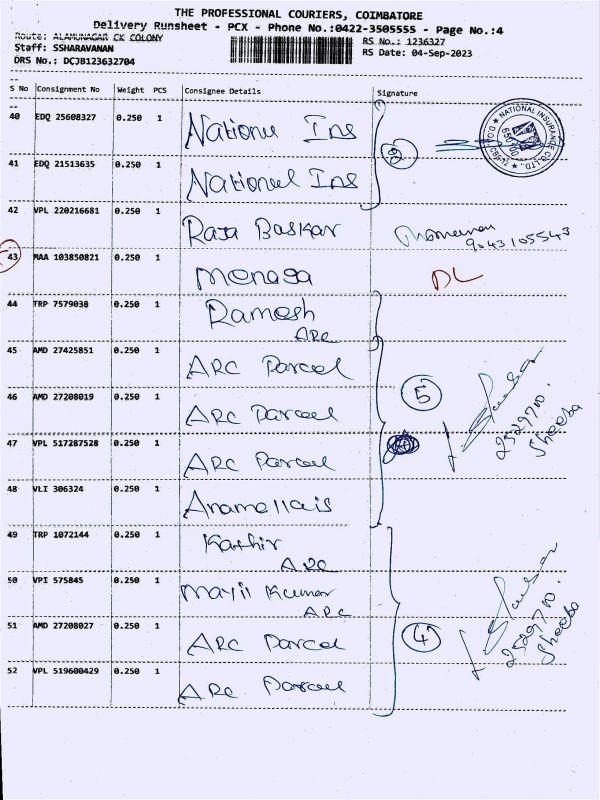 THE PROFESSIONAL COURIERS, COIMBATORE
Delivery Runsheet - PCX - Phone No.:0422-3505555 - Page No.:4
Route: ALAMUNAGAR CK COLONY
RS No.: 1236327
Staff: SSHARAVANAN
RS Date: 04-Sep-2023
DRS No.: DCJB123632704
S No Consignment No Weight PCS Consignee Details Signature
40 EDQ 25608327 0.250 1 National Ins
NATIONAL INSURANCE CO.LTD.,
41 EDQ 21513635 0.250 1 National Ins
42 VPL 220216681 0.250 1 Raja Baskar
9043105543
43 MAA 103850821 0.250 1 Menaga DL
44 TRP 7579038 0.250 1 Ramesh
ARC
45 AMD 27425851 0.250 1 ARC Parcel
46 AMD 27208019 0.250 1 ARC Parcel
5
2529700.
Sheeba
47 VPL 517287528 0.250 1 ARC Parcel
48 VLI 306324 0.250 1 Anamallais
49 TRP 1072144 0.250 1 Kathir
ARC
50 VPI 575845 0.250 1 Mayil Kumar
ARC
51 AMD 27208027 0.250 1 ARC Parcel
4
2529700.
Sheeba
52 VPL 519600429 0.250 1 ARC Parcel